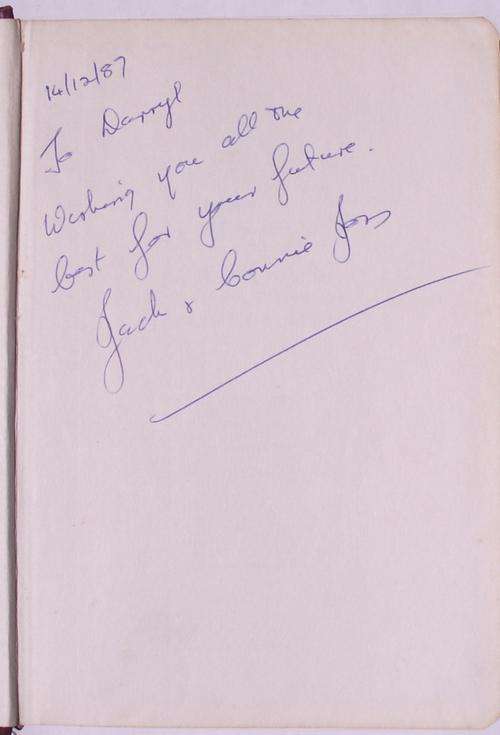 14/12/87
To Darryl
Wishing you all the
best for your future.
Jack & Connie